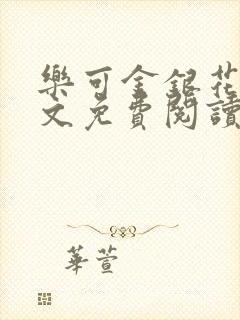 樂可金銀花
文免費閱讀
華萱